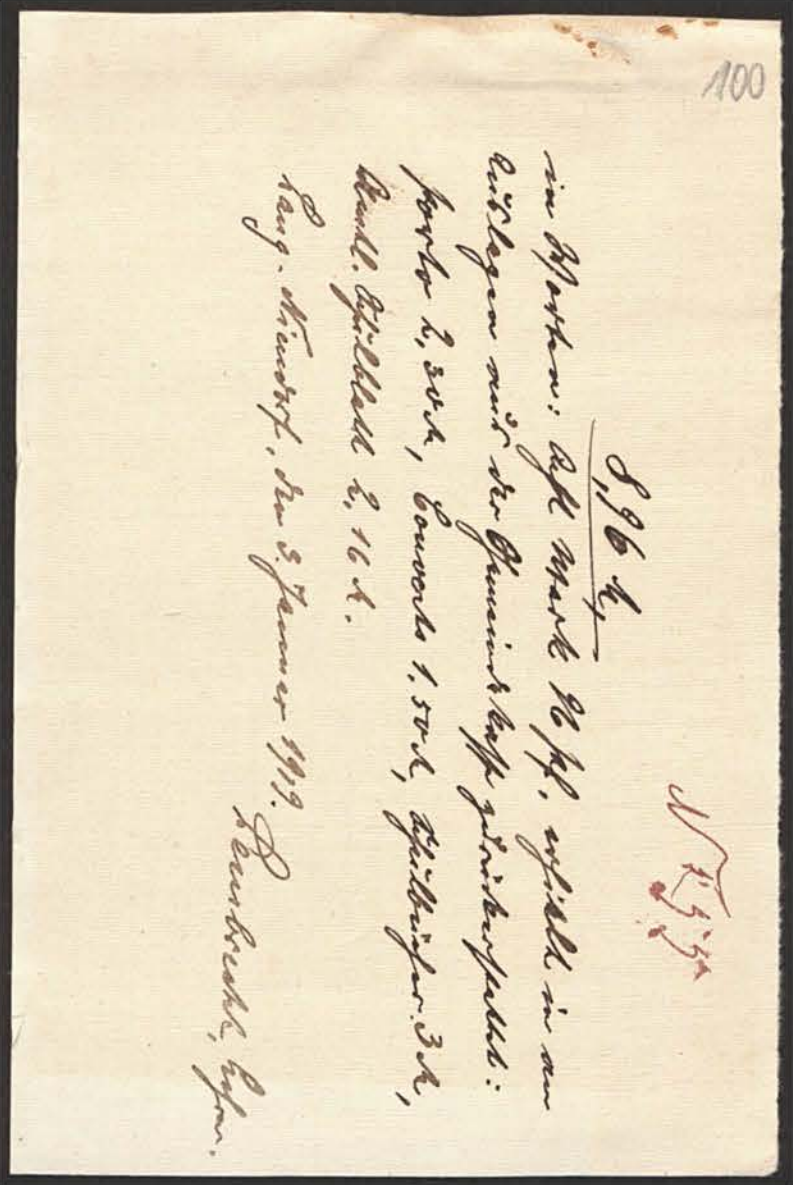 100
8,96 M
in Worten: Acht Mark 96 Pf, erhielt in an
Auslagen aus der Gemeindekasse zurückerstattet:
Porto 2,30 M, Couverts 1.50 M, Schulbücher 3 M,
Amtl. Schulblatt 2,16 M.
Lang-Niendorf, den 3. Januar 1919.
Lembrecht, Lehrer.